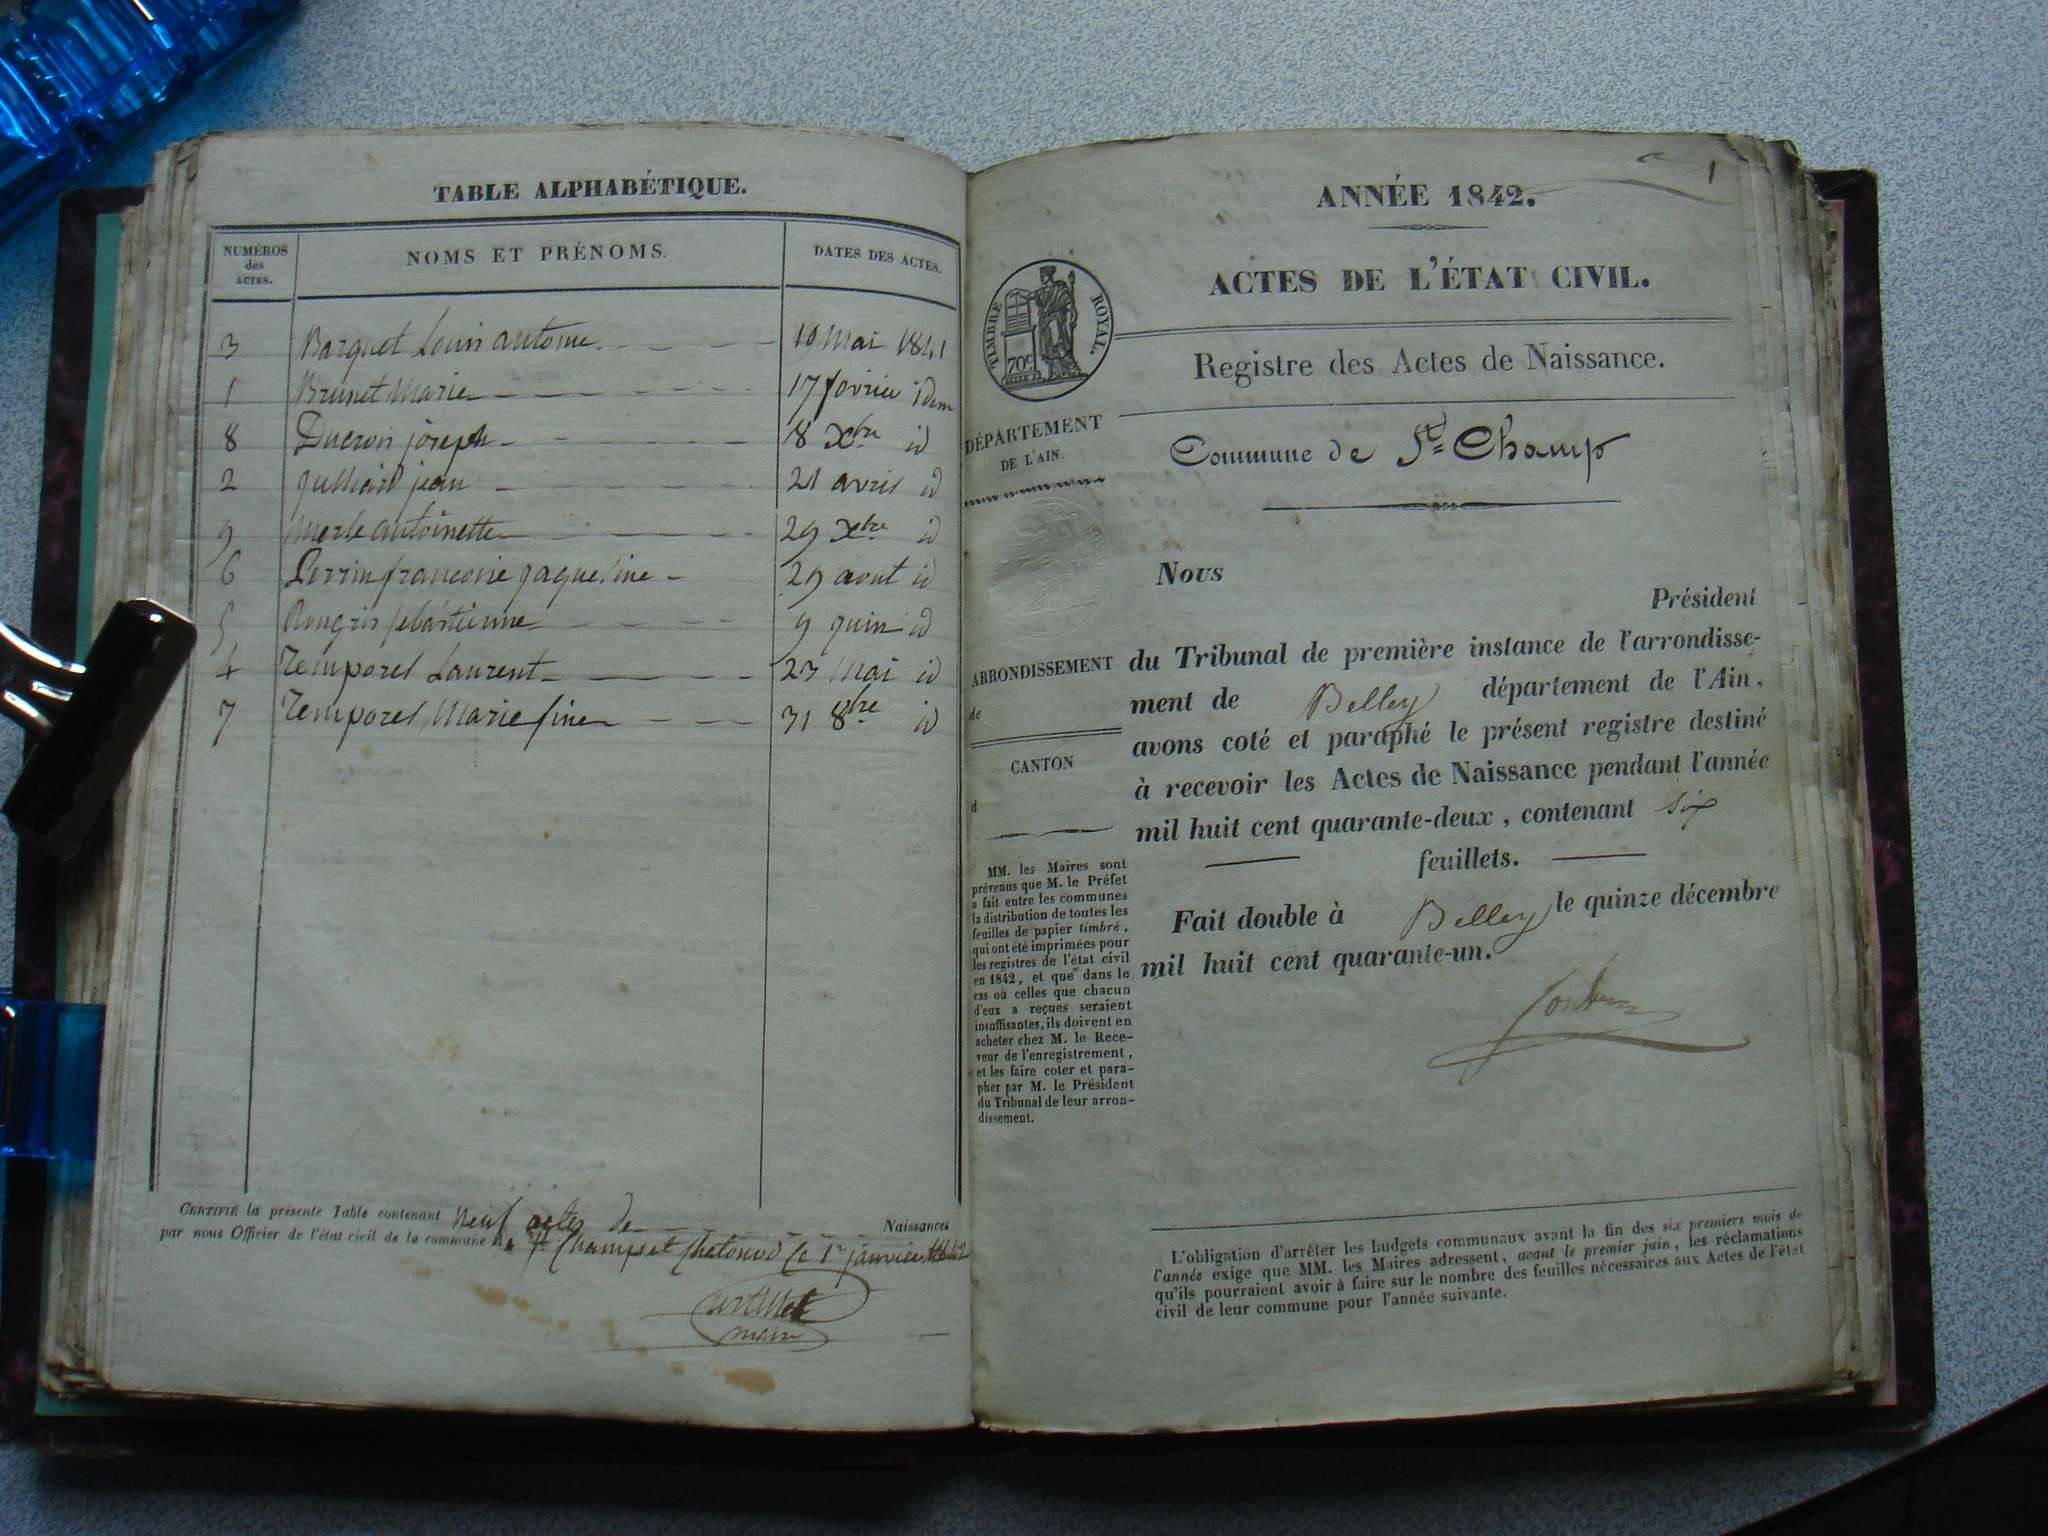 TABLE ALPHABÉTIQUE.
NUMÉROS des ACTES. NOMS ET PRÉNOMS. DATES DES ACTES.
3 Barquet Louis antoine 10 Mai 1841
1 Brunet Marie 17 fevrier idem
8 Ducrois joseph 8 Xbre id
2 julliard jean 21 avril id
9 Merle antoinette 29 Xbre id
6 Perrin françoise jaqueline 29 aout id
5 Rougris sebastienne 9 juin id
4 Temporel Laurent 27 Mai id
7 Temporel Marie fine 31 8bre id
CERTIFIÉ la présente Table contenant neuf actes de Naissances
par nous Officier de l'état civil de la commune de St Champ et Chatonod le 1er janvier 1842
maire
1
ANNÉE 1842.
ACTES DE L'ÉTAT CIVIL.
TIMBRE ROYAL.
70c
Registre des Actes de Naissance.
DÉPARTEMENT
DE L'AIN.
Commune de St Champ
Nous
Président
du Tribunal de première instance de l'arrondisse-
ment de Belley département de l'Ain,
avons coté et paraphé le présent registre destiné
à recevoir les Actes de Naissance pendant l'année
mil huit cent quarante-deux, contenant six
feuillets.
Fait double à Belley le quinze décembre
mil huit cent quarante-un.
ARRONDISSEMENT
de
CANTON
d
MM. les Maires sont
prévenus que M. le Préfet
a fait entre les communes
la distribution de toutes les
feuilles de papier timbré,
qui ont été imprimées pour
les registres de l'état civil
en 1842, et que dans le
cas où celles que chacun
d'eux a reçues seraient
insuffisantes, ils doivent en
acheter chez M. le Rece-
veur de l'enregistrement,
et les faire coter et para-
pher par M. le Président
du Tribunal de leur arron-
dissement.
L'obligation d'arrêter les budgets communaux avant la fin des six premiers mois de
l'année exige que MM. les Maires adressent, avant le premier juin, les réclamations
qu'ils pourraient avoir à faire sur le nombre des feuilles nécessaires aux Actes de l'état
civil de leur commune pour l'année suivante.